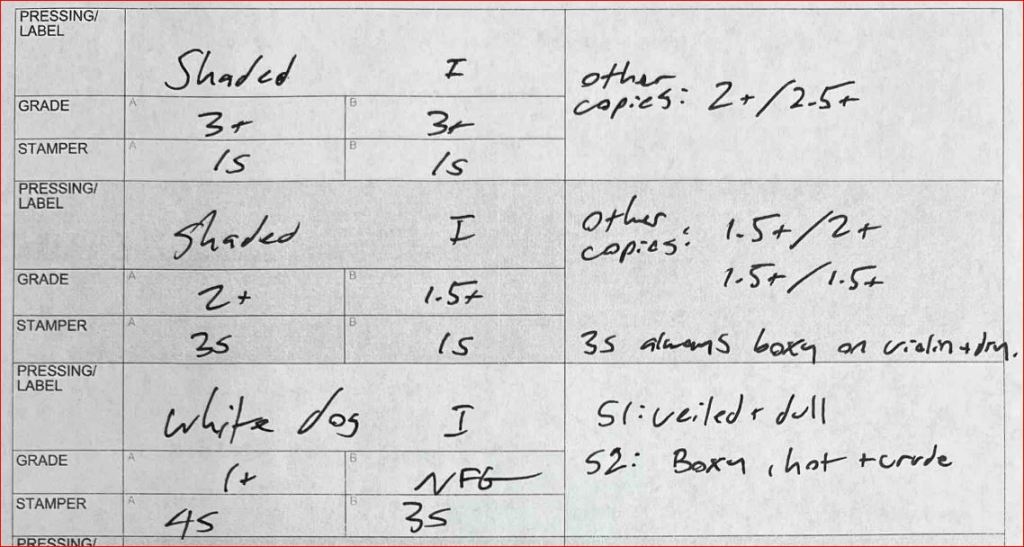 PRESSING/
LABEL
Shaded I
other
copies: 2+/2.5+
GRADE A 3+ B 3+
STAMPER A 1s B 1s
PRESSING/
LABEL
Shaded I
other
copies: 1.5+/2+
1.5+/1.5+
GRADE A 2+ B 1.5+
STAMPER A 3s B 1s
3s always boxy on violin + dry.
PRESSING/
LABEL
white dog I
S1: veiled + dull
GRADE A 1+ B NFG
S2: Boxy, hot + crude
STAMPER A 4s B 3s
PRESSING/